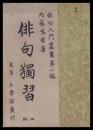 俳句入門叢書第一編
内藤鳴雪著
俳句獨習
東京 大學館發行